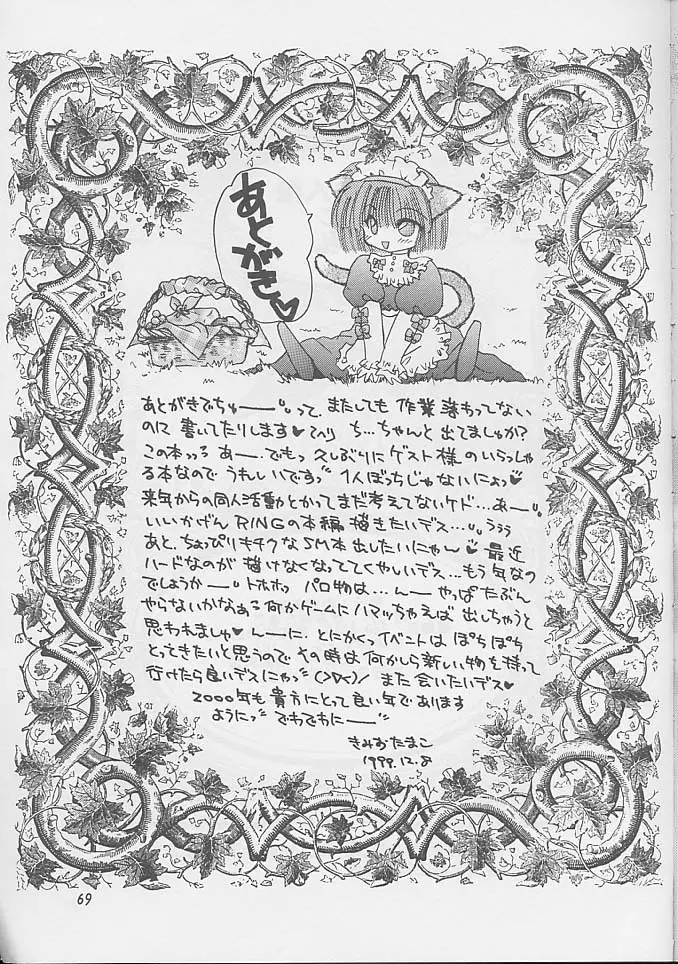 あとがき♥
あとがきでちゅーーー"。って、またしても 作業 落もってない
のに 書いてたりします♥てへり ち…ちゃんと 出てましゅか？
この本っっる あー、でもっ 久しぶりに ゲスト様 のいらっしゃ
る本なので うれしいですっ" 1人ぼっちじゃないにょっ♥
来年からの同人活動とかってまだ考えてないケド…あー"。
いいかげん RINGの本編 描きたいデス…。"ううう
あと、ちょっぴりキチクなSM本出したいにゃ〜♥ 最近
ハードなのが 描けなくなっててくやしいデス…もう 気なの
でしょうかー" トホホっ パロ物は…んー やっぱ たぶん
やらないかなある 何かゲームに ハマッちゃえば 出しちゃうと
思われましゅ♥ んーに、とにかくっイベントは ぽちぽち
とってきたいと思うので その時は何かしら新しい物を持って
行けたら良いデスにゃっ" (>▽<)/ また会いたいデス♥
2000年も貴方にとって良い年であります
ように" でわでわにー"
きみおたまこ
1999.12.8
69